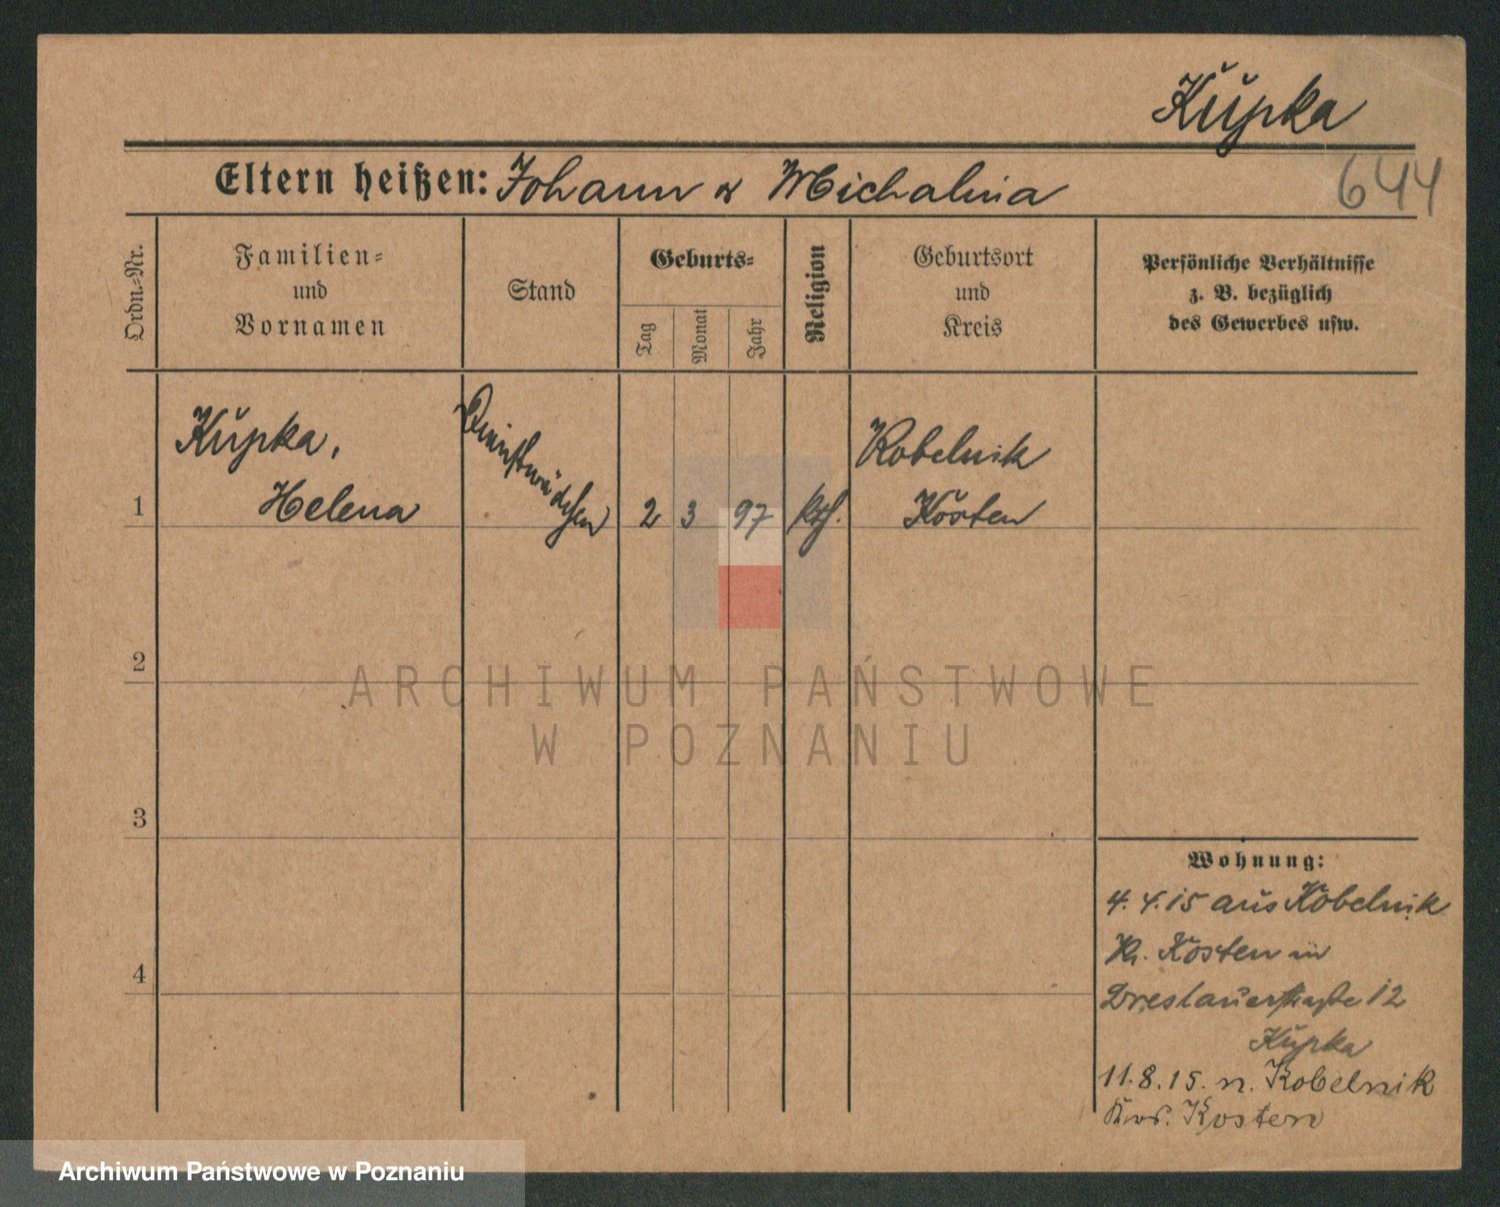 Kupka
644
Eltern heißen: Johann & Michalina
Ordn.-Nr.
Familien-
und
Vornamen
Stand
Geburts-
Tag
Monat
Jahr
Religion
Geburtsort
und
Kreis
Persönliche Verhältnisse
z. B. bezüglich
des Gewerbes usw.
1
Kupka,
Helena
Dienstmädchen
2 3 97
kth.
Kobelnik
Kosten
2
3
4
Wohnung:
4.4.15 aus Kobelnik
Kr. Kosten in
Breslauerstraße 12
Kupka
11.8.15. n. Kobelnik
Kosten
ARCHIWUM PAŃSTWOWE
W POZNANIU
Archiwum Państwowe w Poznaniu